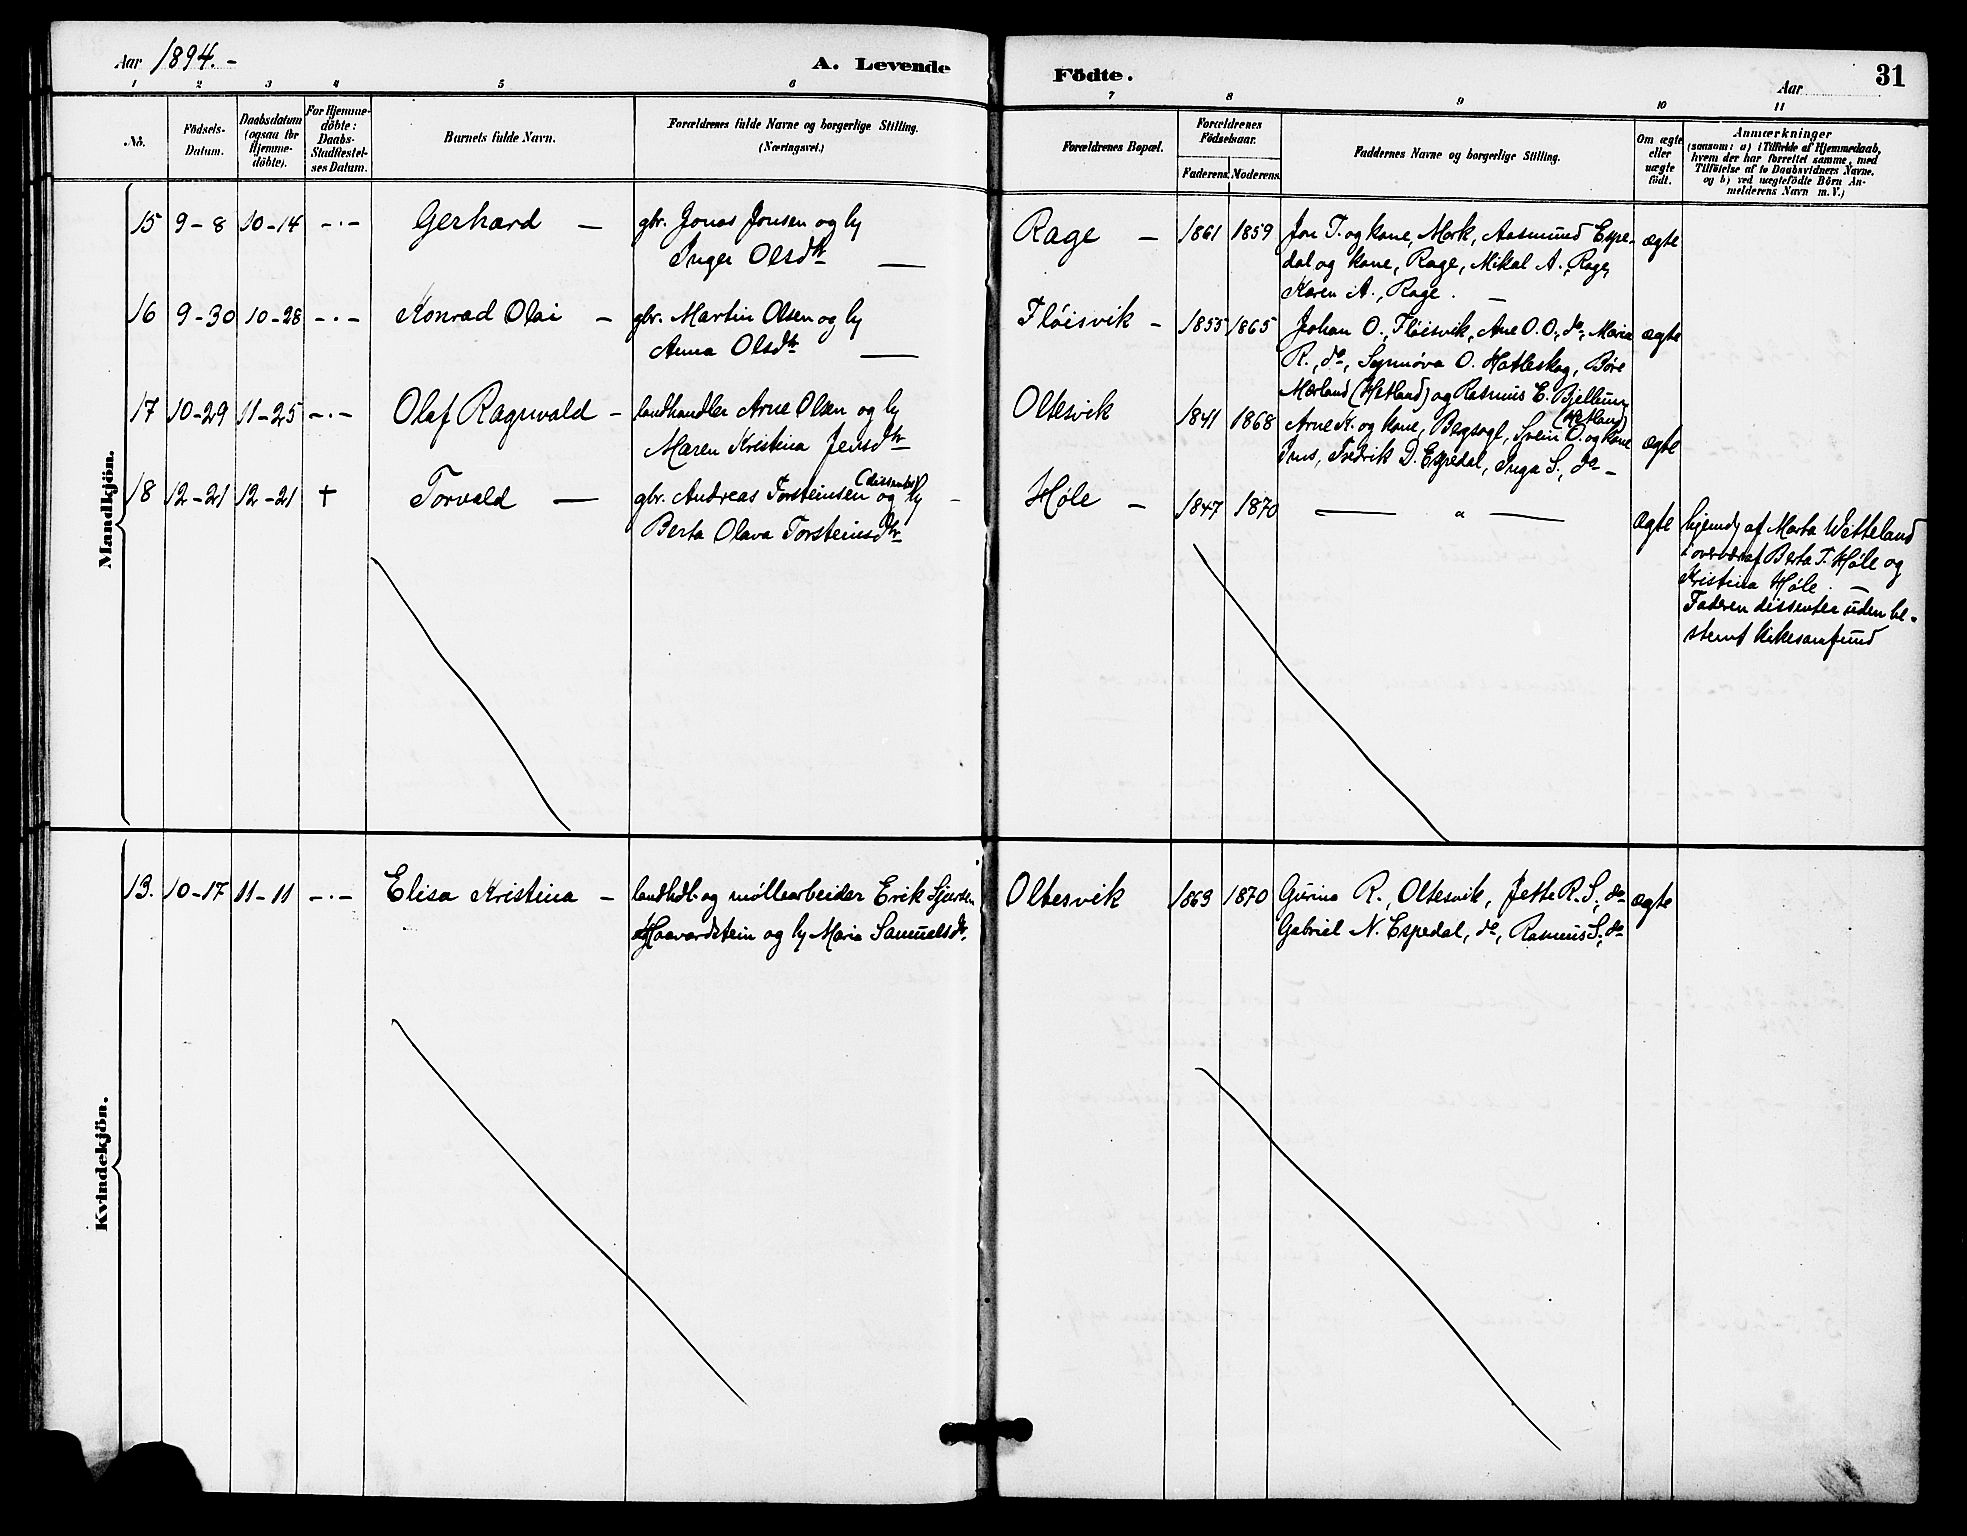 Aar 1894.-
A. Levende
Födte.
Aar
31
1 2 3 4 5 6
7 8 9 10 11
No.
Födsels-
Datum.
Daabsdatum
(ogsaa for
Hjemme-
döbte).
For Hjemme-
döbte:
Daabs-
Stadfestel-
ses Datum.
Barnets fulde Navn.
Forældrenes fulde Navne og borgerlige Stilling.
(Næringsvei.)
Forældrenes Bopæl.
Forældrenes
Födselsaar.
Faderens. Moderens.
Faddernes Navne og borgerlige Stilling.
Om ægte
eller
uægte
födt.
Anmærkninger
(saasom: a) i Tilfælde af Hjemmedaab,
hvem der har forrettet samme, med
Tilföielse af to Daabsvidners Navne.
og b) ved uægtefödte Börn An-
melderens Navn m. V.)
Mandkjön.
15 9-8 10-14 -.- Gerhard - gbr. Jonas Jonsen og h
Inger Olsdtr —
Rage - 1861 1859 Jon T. og kone, Mork, Aasmund Espe-
dal og kone, Rage, Mikal A., Rage,
Karen A., Rage. —
ægte
16 9-30 10-28 -.- Konrad Olai - gbr. Martin Olsen og h
Anna Olsdtr —
Fløisvik - 1855 1865 Johan O., Fløisvik, Ane O. O., do, Maria
R., do, Synnøva O. Hatleskog, Børe
Mærland (Hetland) og Rasmus E. Bjelland
(Hetland)
ægte
17 10-29 11-25 -.- Olaf Ragnvald - landhandler Arne Olsen og h
Maren Kristina Jensdtr
Oltesvik 1841 1868 Arne K. og kone, Bergsagl, Svein O. og kone
Ims, Fredrik D. Espedal, Inga S., do -
ægte
18 12-21 12-21 † Torvald — gbr. Andreas Torsteinsen (dissenter) og h -
Berta Olava Torsteinsdtr
Høle - 1847 1870 — " —
ægte
hjemd. af Marta Wetteland
i overvær af Berta T. Høle og
Kristina Høle. —
Faderen dissenter uden be-
stemt kirkesamfund
Kvindekjön.
13. 10-17 11-11 -.- Elisa Kristina - landhdl. og møllearbeider Erik Sjursen
Haavardstein og h Maria Samuelsdr.
Oltesvik 1863 1870 Gurina R., Oltesvik, Jette R. S., do
Gabriel N. Espedal, do, Rasmus S., do
ægte